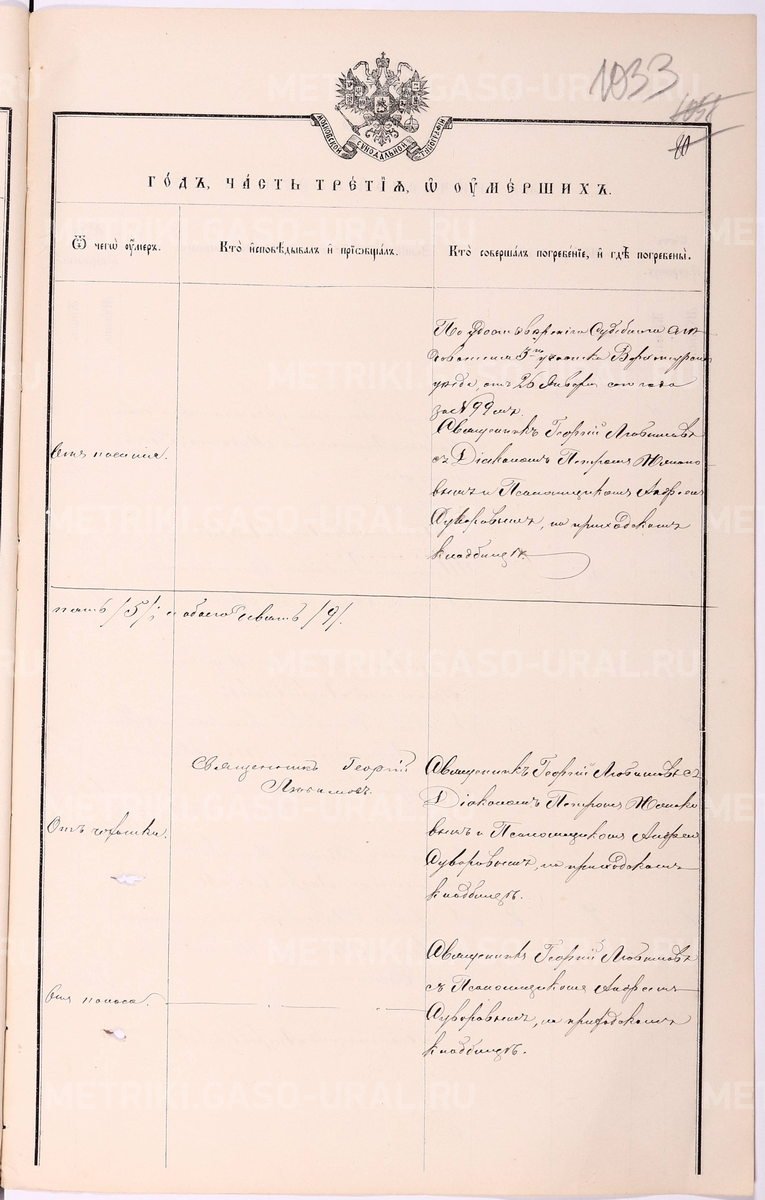 1033
20
МОСКОВСКОЙ СѴНОДАЛЬНОЙ ТИПОГРАФІИ
ГО́ДЪ, ЧА́СТЬ ТРЕ́ТІѦ, Ѡ҆ ОУ҆МЕ́РШИХЪ.
Ѿ чегѡ̀ оу҆́меръ.
Кто̀ и҆сповѣ́дывалъ и҆ прїѡбща́лъ.
Кто̀ соверша́лъ погребе́нїе, и҆ гдѣ̀ погребены̀.
По удостовѣренію Судебнаго слѣ-
дователя 3го участка Верхотурскаго
уѣзда, отъ 26 Января сего года
за № 99мъ.
Священникъ Георгій Любимовъ
съ Діакономъ Петромъ
вымъ и Псаломщикомъ Андреемъ
Суворовымъ, на приходскомъ
кладбищѣ.
пять /5/; обоего девять /9/.
Священникъ Георгій
Любимовъ.
Отъ чахотки.
Священникъ Георгій Любимовъ съ
Діакономъ Петромъ
вымъ и Псаломщикомъ Андреемъ
Суворовымъ, на приходскомъ
кладбищѣ.
Отъ поноса.
Священникъ Георгій Любимовъ
съ Псаломщикомъ Андреемъ
Суворовымъ, на приходскомъ
кладбищѣ.
METRIKI.GASO-URAL.RU